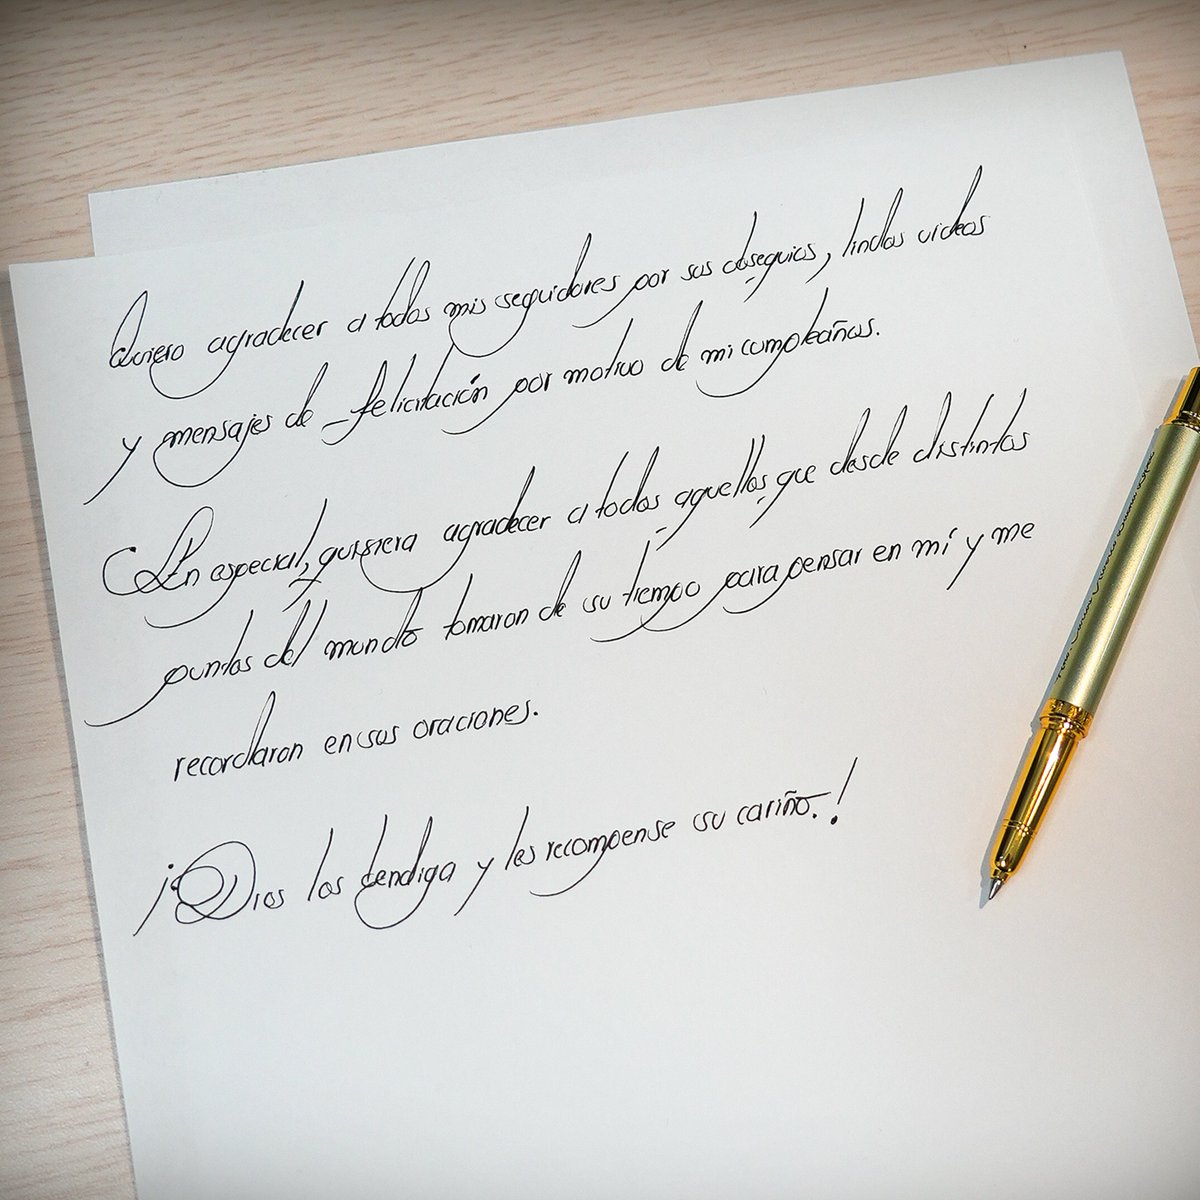 Quiero agradecer a todos mis seguidores por sus obsequios, lindos videos
y mensajes de felicitación por motivo de mi cumpleaños.
En especial, quisiera agradecer a todos aquellos que desde distintos
puntos del mundo tomaron de su tiempo para pensar en mí y me
recordaron en sus oraciones.
¡Dios los bendiga y les recompense su cariño.!